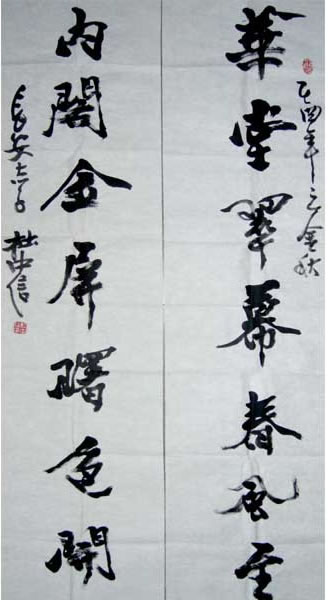 乙酉年之金秋
華堂翠幕春風至
内閣金屏曙色開
長安 杜中信